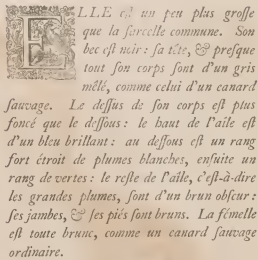 ELLE est un peu plus grosse
que la sarcelle commune. Son
bec est noir : sa tête, & presque
tout son corps sont d'un gris
mêlé, comme celui d'un canard
sauvage. Le dessus de son corps est plus
foncé que le dessous : le haut de l'aîle est
d'un bleu brillant : au dessous est un rang
fort étroit de plumes blanches, ensuite un
rang de vertes : le reste de l'aîle, c'est-à-dire
les grandes plumes, sont d'un brun obscur :
ses jambes, & ses piés sont bruns. La fémelle
est toute brune, comme un canard sauvage
ordinaire.